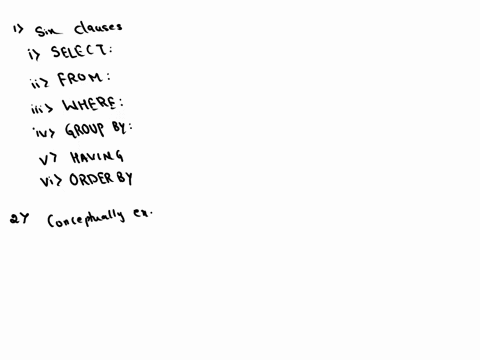 1> Six clauses
i> SELECT:
ii> FROM:
iii> WHERE:
iv> GROUP BY:
v> HAVING
vi> ORDER BY
2> Conceptually ex.